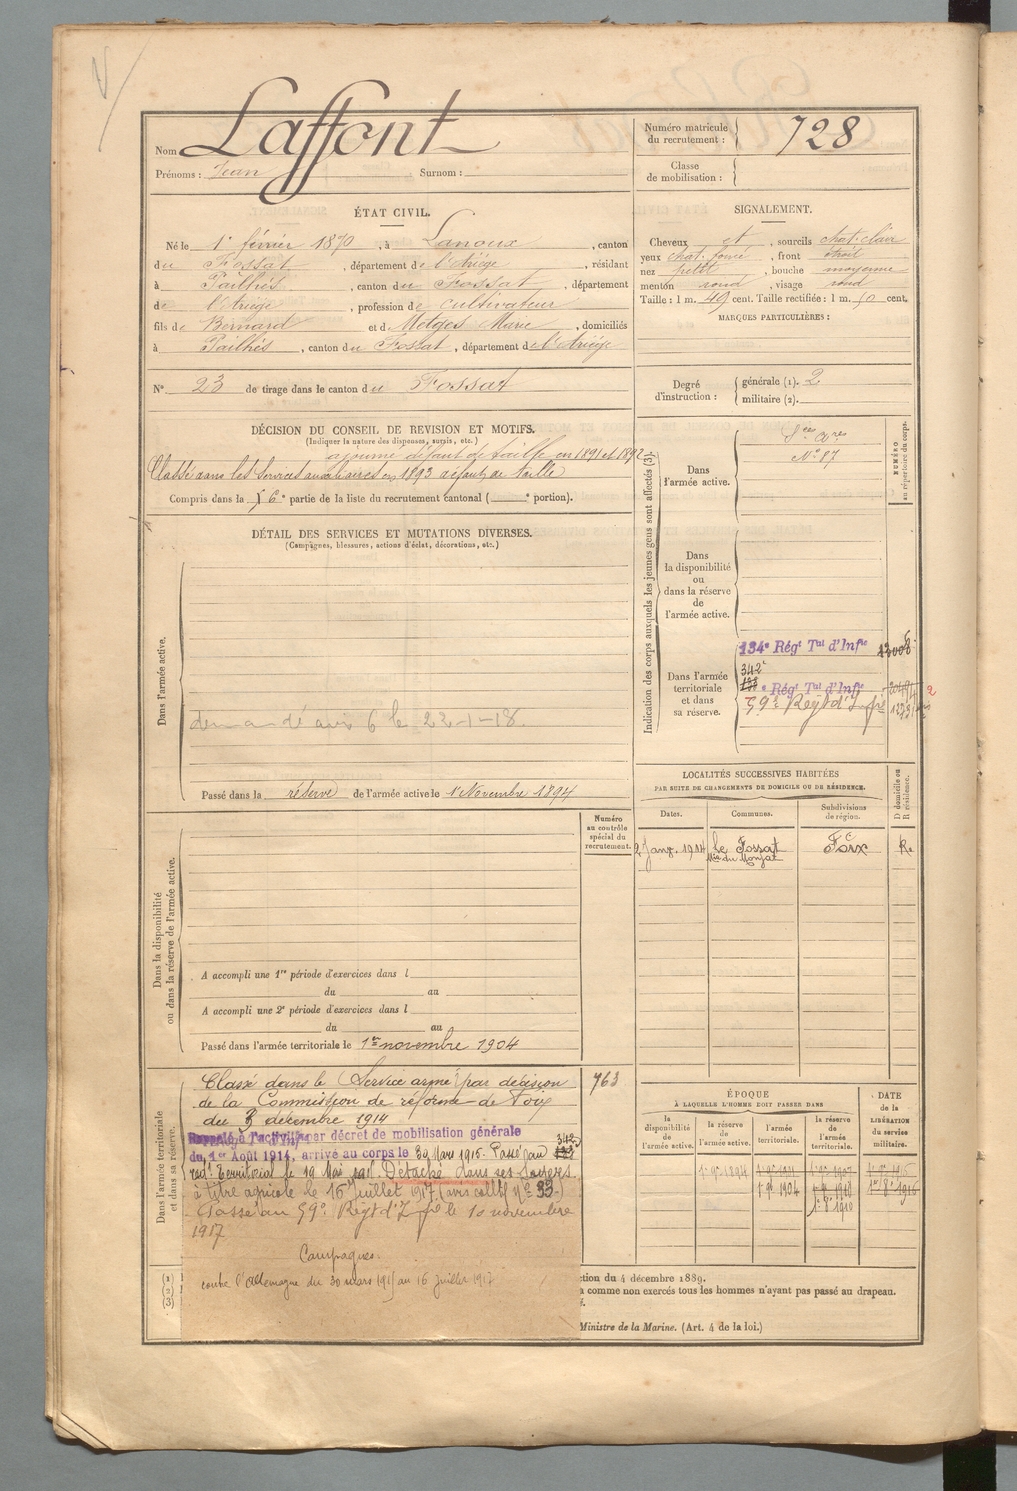 Nom Laffont
Prénoms : Jean Surnom :
Numéro matricule du recrutement : 728
Classe de mobilisation :
ÉTAT CIVIL.
Né le 1er février 1870, à Lanoux, canton
du Fossat, département de l'Ariège, résidant
à Pailhès, canton du Fossat, département
de l'Ariège, profession de cultivateur
fils de Bernard et de Metges Marie, domiciliés
à Pailhès, canton du Fossat, département de l'Ariège
N° 23 de tirage dans le canton du Fossat
SIGNALEMENT.
Cheveux et, sourcils chat. clair
yeux chat. foncé, front étroit
nez petit, bouche moyenne
menton rond, visage rond
Taille : 1 m. 49 cent. Taille rectifiée : 1 m. 50 cent.
MARQUES PARTICULIÈRES :
Degré d'instruction : générale (1). 2
militaire (2).
DÉCISION DU CONSEIL DE REVISION ET MOTIFS.
(Indiquer la nature des dispenses, sursis, etc.)
ajourné défaut de taille en 1891 et 1892
Classé dans les services auxiliaires en 1893 défaut de taille
Compris dans la 6e partie de la liste du recrutement cantonal ( e portion).
DÉTAIL DES SERVICES ET MUTATIONS DIVERSES.
(Campagnes, blessures, actions d'éclat, décorations, etc.)
Dans l'armée active.
demandé avis 6 le 22-1-18.
Passé dans la réserve de l'armée active le 1er Novembre 1894
Indication des corps auxquels les jeunes gens sont affectés (3).
Dans l'armée active.
Sces Ares
N° 87
NUMÉRO au répertoire du corps.
Dans la disponibilité ou dans la réserve de l'armée active.
Dans l'armée territoriale et dans sa réserve.
134e Régt Tal d'Infie
342e
133e Régt Tal d'Infie
59e Régt d'Infie
2
LOCALITÉS SUCCESSIVES HABITÉES
PAR SUITE DE CHANGEMENTS DE DOMICILE OU DE RÉSIDENCE.
Dates. Communes. Subdivisions de région. D domicile ou R résidence.
2 Janv. 1914 Le Fossat Foix R.
Min du Monjat
Numéro au contrôle spécial du recrutement.
763
Dans la disponibilité ou dans la réserve de l'armée active.
A accompli une 1re période d'exercices dans l
du au
A accompli une 2e période d'exercices dans l
du au
Passé dans l'armée territoriale le 1er novembre 1904
Dans l'armée territoriale et dans sa réserve.
Classé dans le Service armé par décision
de la Commission de réforme de Foix
du 3 décembre 1914
Rappelé à l'activité par décret de mobilisation générale
du 1er Août 1914, arrivé au corps le 30 Mars 1915. Passé au 133 342e
regt Territorial le 19 Mai 1915. Détaché dans ses foyers
à titre agricole le 16 juillet 1917 (avis collif N° 33.)
Passé au 59e Régt d'Infie le 10 novembre
1917
Campagnes:
contre l'Allemagne du 30 mars 1915 au 16 juillet 1917
ÉPOQUE
A LAQUELLE L'HOMME DOIT PASSER DANS
la disponibilité de l'armée active. la réserve de l'armée active. l'armée territoriale. la réserve de l'armée territoriale.
DATE de la LIBÉRATION du service militaire.
1er 9bre 1894
1er 9bre 1904
ction du 4 décembre 1889.
a comme non exercés tous les hommes n'ayant pas passé au drapeau.
Ministre de la Marine. (Art. 4 de la loi.)